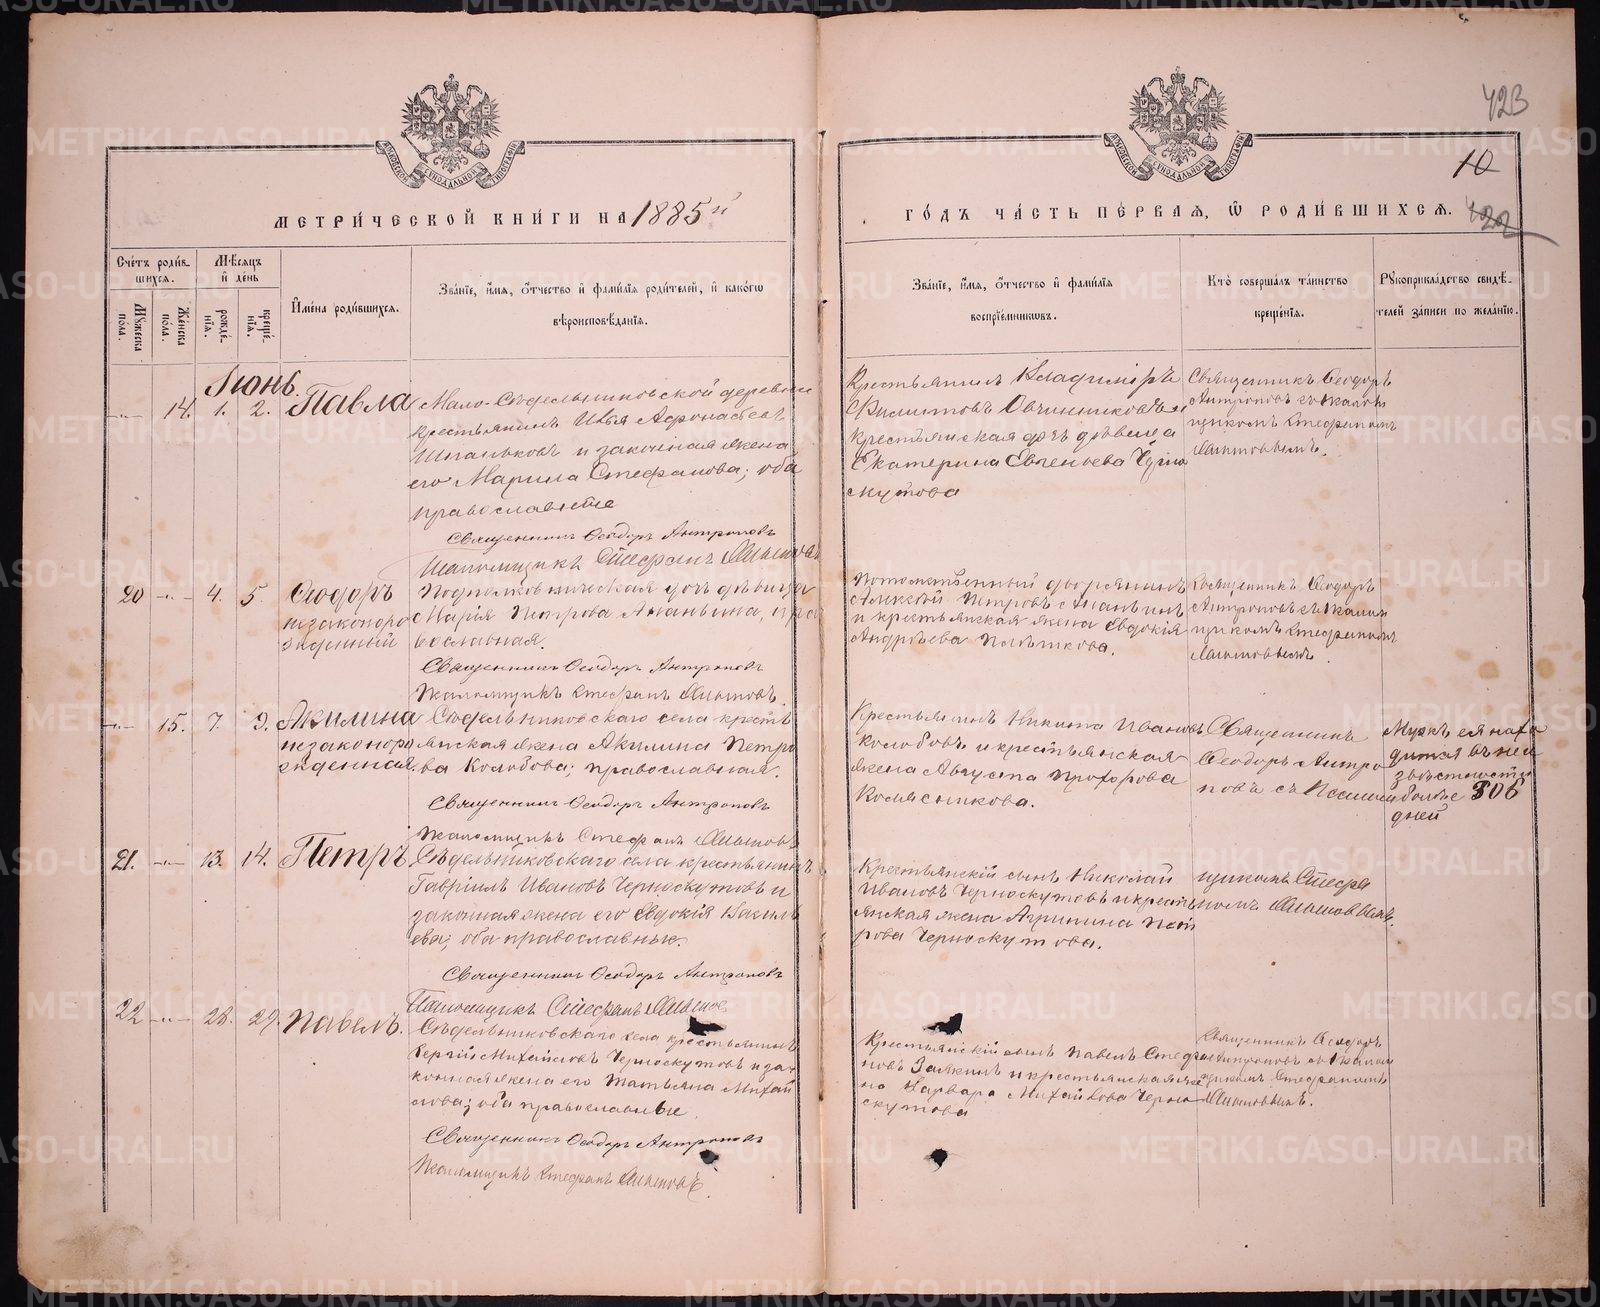 423
10
422
МЕТРИЧЕСКОЙ КНИГИ НА 1885й
ГОДЪ ЧАСТЬ ПЕРВАЯ, Ѡ РОДИВШИХСЯ.
Счетъ родившихся.
Мужеска пола.
Женска пола.
Мѣсяцъ и день
рожденія.
крещенія.
Имена родившихся.
Званіе, имя, отчество и фамилія родителей, и какогѡ
вѣроисповѣданія.
Званіе, имя, отчество и фамилія
воспріемниковъ.
Кто совершалъ таинство
крещенія.
Рукоприкладство свидѣ-
телей записи по желанію.
Іюнь.
14. 1. 2. Павла
Мало-Сѣдельниковской деревни
крестьянинъ Илья Афонасьевъ
и законная жена
его Марина Стефанова; оба
православные
Священникъ Ѳеодоръ Антроповъ
Псаломщикъ Стефанъ
Крестьянинъ Владиміръ
Филиповъ Овчинниковъ и
крестьянская дѣвица
Екатерина Евгеньева Черно
скутова
Священникъ Ѳеодоръ
Антроповъ съ псалом
щикомъ Стефаномъ
20 4. 5. Ѳеодоръ
незаконоро
жденный
Подполковническая дочь дѣвица
Марія Петрова Ананьина, пра
вославная.
Священникъ Ѳеодоръ Антроповъ
Псаломщикъ Стефанъ
Потомственный дворянинъ
Алексѣй Петровъ Ананьинъ
и крестьянская жена Евдокія
Андрѣева
Священникъ Ѳеодоръ
Антроповъ съ псалом
щикомъ Стефаномъ
15. 7. 9. Акилина
незаконоро
жденная.
Сѣдельниковскаго села кресть
янская жена Акилина Петро
ва Колобова; православная.
Священникъ Ѳеодоръ Антроповъ
Псаломщикъ Стефанъ
Крестьянинъ Никита Ивановъ
Колобовъ и крестьянская
жена Августа Прохорова
Колясникова.
Священникъ
Ѳеодоръ Антро
повъ съ Псалом
Мужъ ея нахо
дится въ неи
звѣстности
болѣе 306
дней
21. 13. 14. Петръ
Сѣдельниковскаго села крестьянинъ
Гавріилъ Ивановъ Черноскутовъ и
законная жена его Евдокія Василь
ева; оба православные.
Священникъ Ѳеодоръ Антроповъ
Псаломщикъ Стефанъ
Крестьянскій сынъ Николай
Ивановъ Черноскутовъ и кресть
янская жена Агрипина Пет
рова Черноскутова.
щикомъ Стефа
номъ
22 28. 29. Павелъ.
Сѣдельниковскаго села крестьянинъ
Сергій Михайловъ Черноскутовъ и за
конная жена его Татьяна Михай
лова; оба православные
Священникъ Ѳеодоръ Антроповъ
Псаломщикъ Стефанъ
Крестьянскій сынъ Павелъ Стефа
новъ Заякинъ и крестьянская же
на Варвара Михайлова Черно
скутова
Священникъ Ѳеодоръ
Антроповъ съ псалом
щикомъ Стефаномъ
METRIKI.GASO-URAL.RU